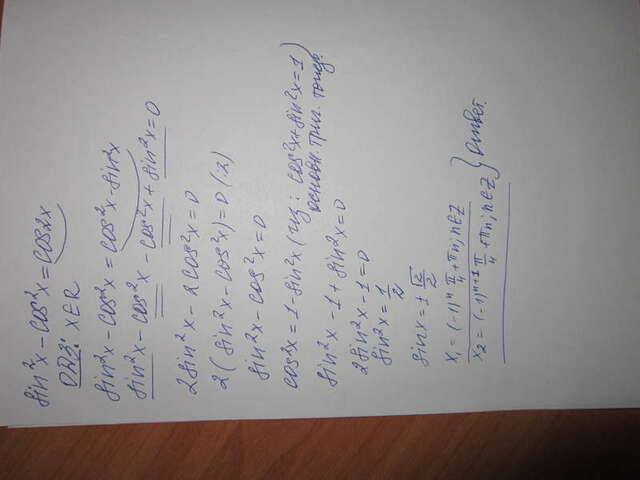 sin²x - cos²x = cos2x
ОДЗ: x∈R
sin²x - cos²x = cos²x - sin²x
sin²x - cos²x - cos²x + sin²x = 0
2sin²x - 2cos²x = 0
2(sin²x - cos²x) = 0 (:2)
sin²x - cos²x = 0
cos²x = 1 - sin²x (из: cos²x + sin²x = 1)
основн. триг. тожд.
sin²x - 1 + sin²x = 0
2sin²x - 1 = 0
sin²x = 1/2
sinx = ± √2/2
x₁ = (-1)ⁿ π/4 + πn; n∈Z
x₂ = (-1)ⁿ⁺¹ π/4 + πn; n∈Z } Ответ